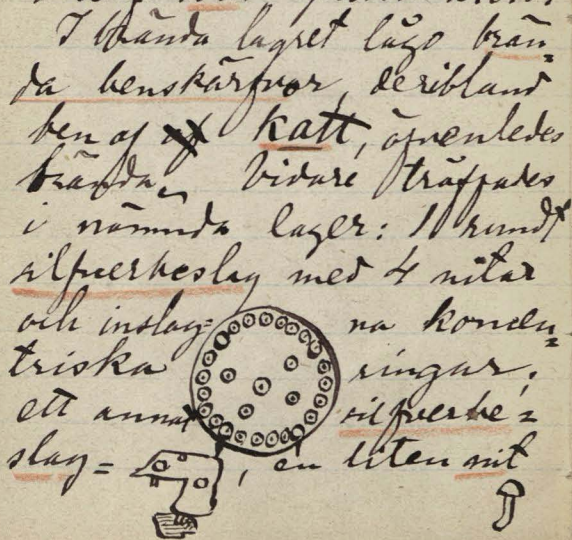 I brända lagret lågo brän-
da benskärfvor, deribland
ben af katt, äfvenledes
brända. Vidare träffades
i nämnda lager: 1 rundt
silfverbeslag med 4 nitar
och inslag= na koncen-
triska ringar;
ett annat silfverbe=
slag= , en liten nit